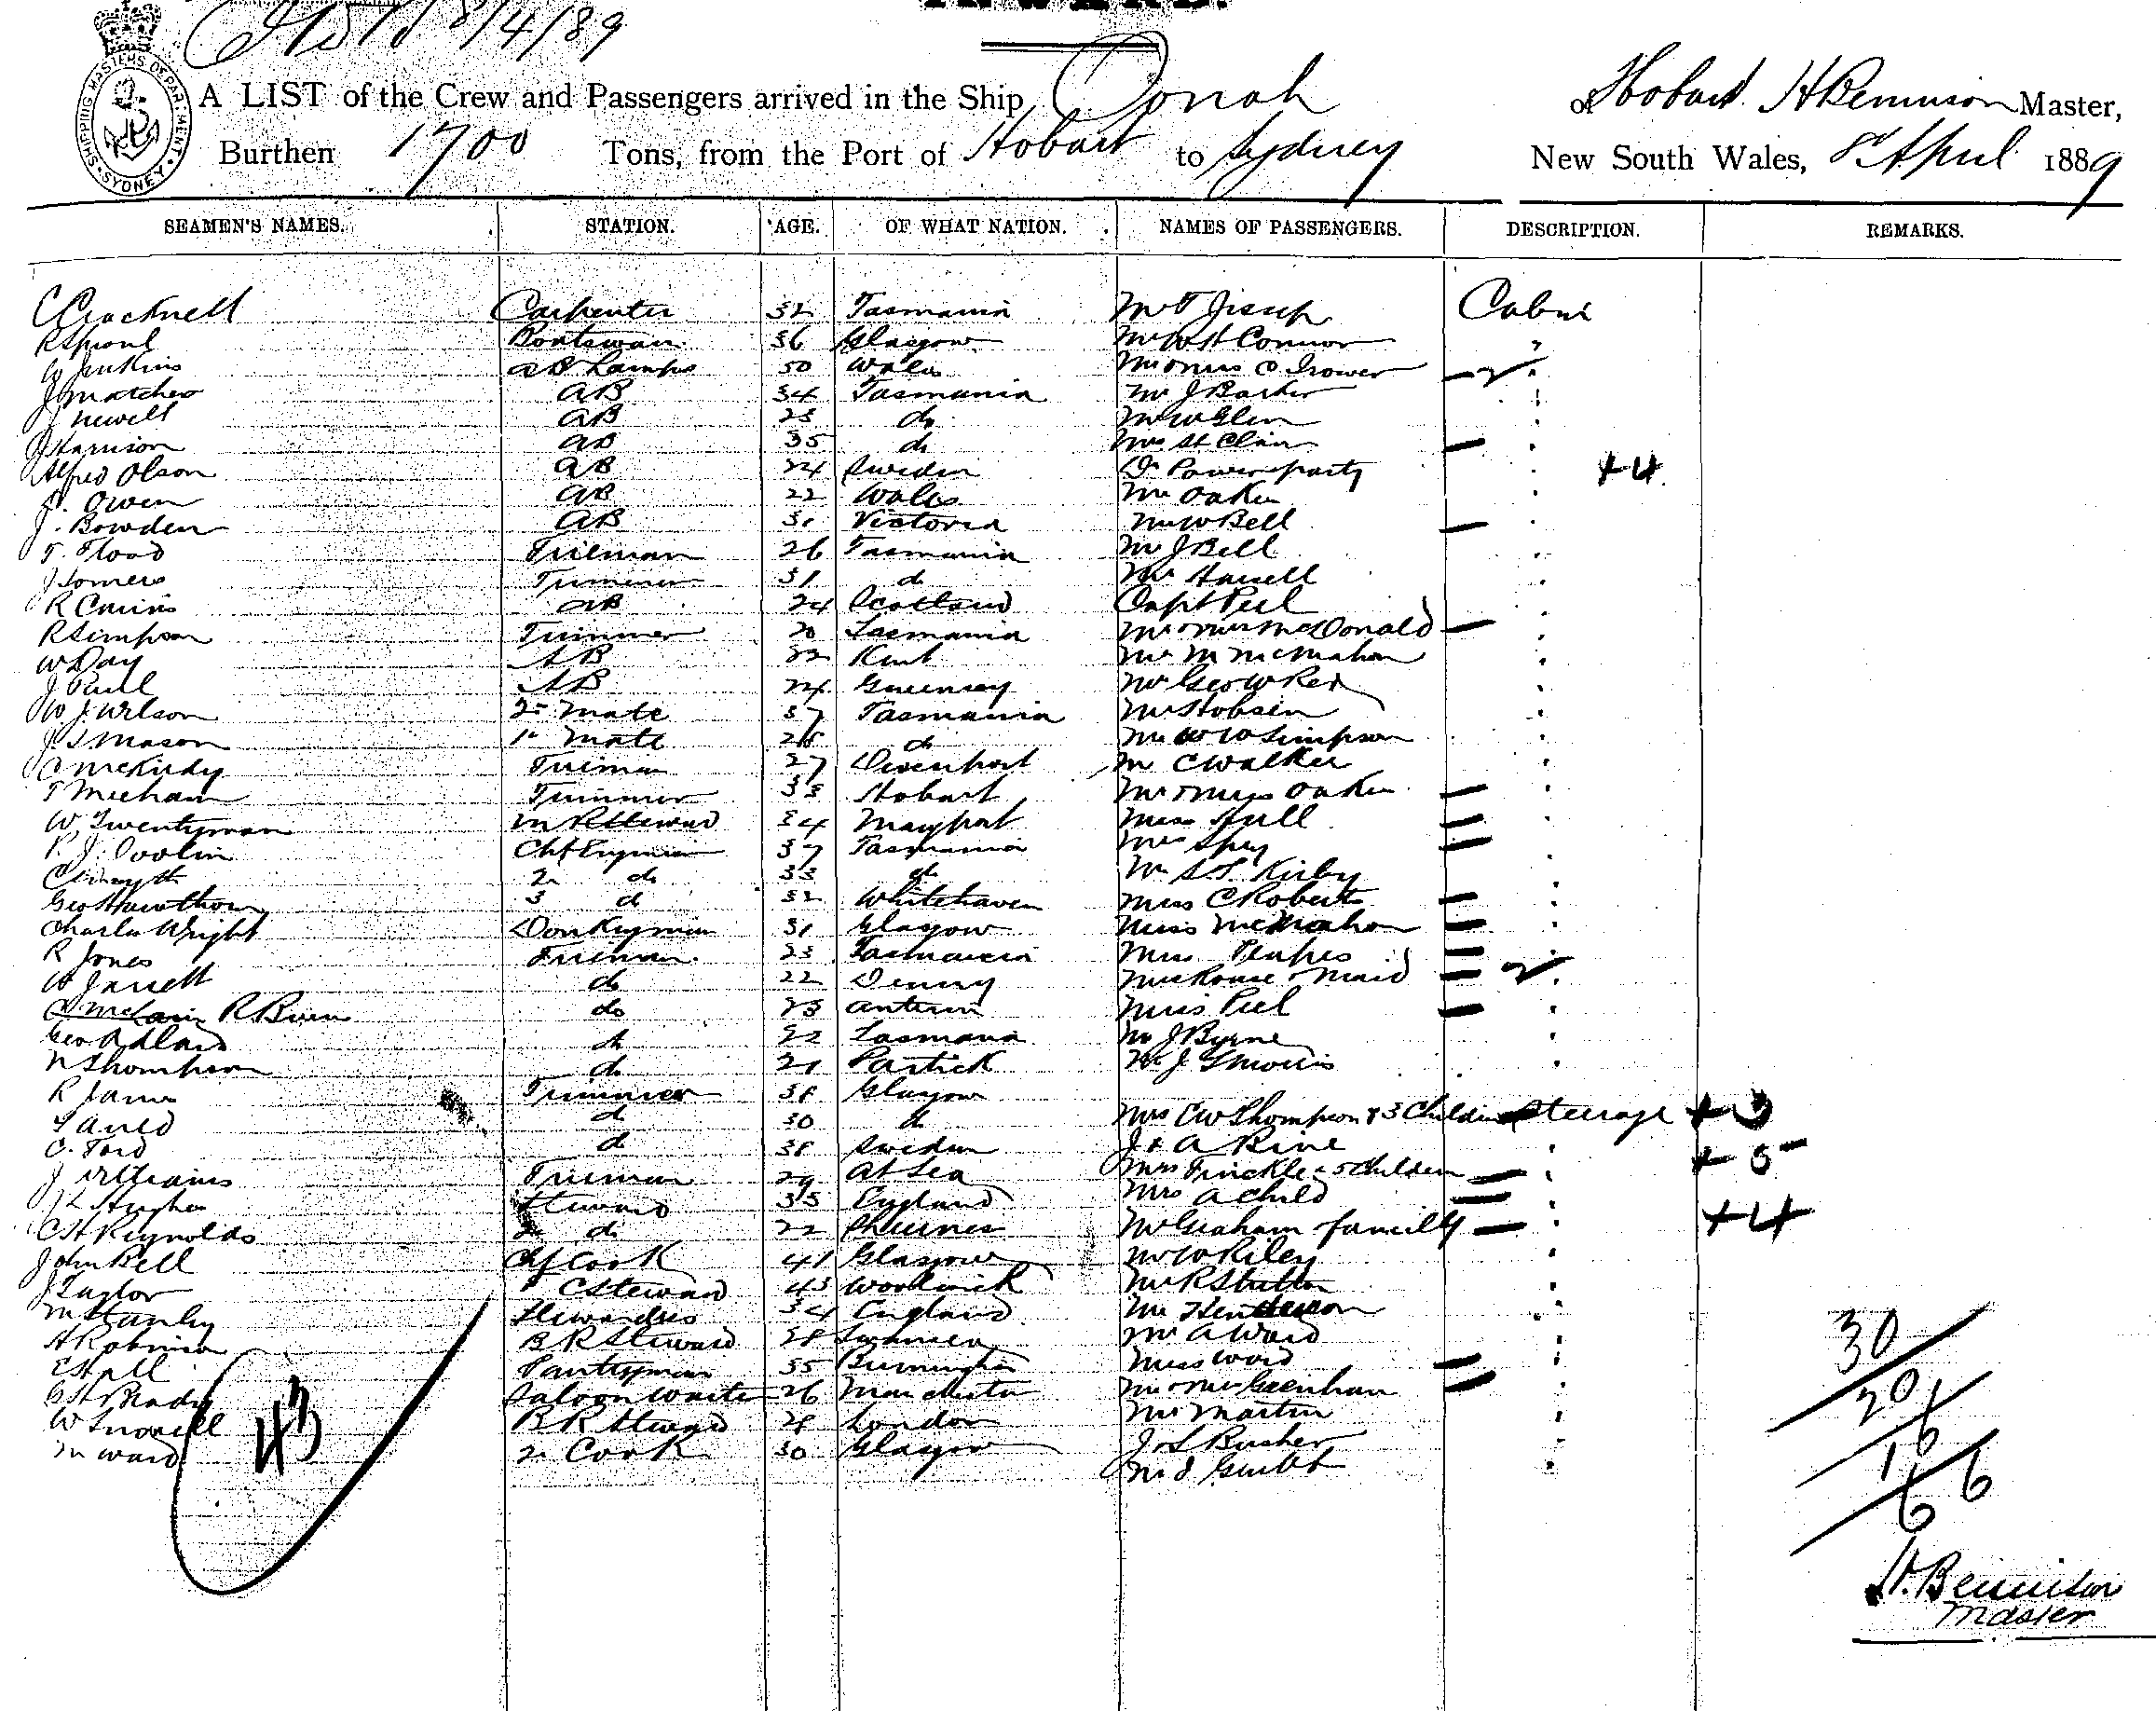 8/4/89
SHIPPING MASTERS DEPARTMENT SYDNEY
A LIST of the Crew and Passengers arrived in the Ship Oonah of Hobart. H Bennison Master,
Burthen 1700 Tons, from the Port of Hobart to Sydney New South Wales, 8 April 1889
SEAMEN'S NAMES. STATION. AGE. OF WHAT NATION. NAMES OF PASSENGERS. DESCRIPTION. REMARKS.
C Cracknell Carpenter 32 Tasmania Mr T Jissup Cabin
R Sproul Boatswain 36 Glasgow Mr W H Connor "
W Jenkins AB Lamps 50 Wales Mr & Mrs O Grower
J Matches AB 34 Tasmania Mr J Barker
J Newell AB 23 do Mr W Glen
J Harrison AB 35 do Mrs St Clair
Alfred Olson AB 24 Sweden Dr Power party +4
J. Owen AB 22 Wales Mr Oaken
J. Bowden AB 31 Victoria Mrs W Bell
T. Flood Fireman 26 Tasmania Mr J Bell
J Somers Trimmer 31 do Mr
R Cairns AB 24 Scotland Capt Peel
R Simpson Trimmer 20 Tasmania Mr & Mrs McDonald
W Day AB 22 Kent Mr M McMahon
J Paul AB 24 Guernsey Mr Geo W Rex
W J Wilson 2nd Mate 37 Tasmania Mr Hobson
J S Mason 1st Mate 28 do Mr W W Simpson
C McKirdy Fireman 27 Devenport Mr C Walker
T Meeham Trimmer 33 Hobart Mr & Mrs Oaken
W Twentyman M R Steward 34 Maryport Miss Hull
P. J. Doolin Chf Engineer 37 Tasmania Mrs Spry
C Smyth 2 do 33 do Mr S T Kirby
Geo Hawthorn 3 d 32 Whitehaven Miss C Roberts
Charles Wright Donkeyman 31 Glasgow Miss McMahon
R Jones Fireman 23 Tasmania Miss Peakes
W Jarrett do 22 Derry Mrs Rouse & Maid
R Burn do 23 Antrim Miss Peel
Geo Adlard do 22 Tasmania Mr J Byrne
N Thompson do 21 Partick Mr J S Morris
R James Trimmer 38 Glasgow
T Auld d 30 do Mrs C W Thompson & 3 Children Steerage +3
C. Ford d 38 Sweden J & A Rive
J Williams Fireman 29 At Sea Mrs Trinckle & 5 Children +5
J L Hughes Steward 35 England Mrs A Child
C H Reynolds 2 do 22 Sheerness Mr Graham family +4
John Bell Chf Cook 41 Glasgow Mr W Riley
J Taylor F C Steward 43 Woolwich Mr R Stutton
M Stanley Stewardess 34 England Mr Henderson
A Robinson B R Steward 28 Swansea Mr A Ward
E Hall Pantryman 35 Birmingham Miss Ward
C H Brady Saloon Waiter 26 Manchester Mr & Mrs Greenham
W Snowell B R Steward 28 London Mr Martin
M Ward 2 Cook 30 Glasgow J S Busher
Mr J Gubbt
43
30
20
16
66
H. Bennison
Master